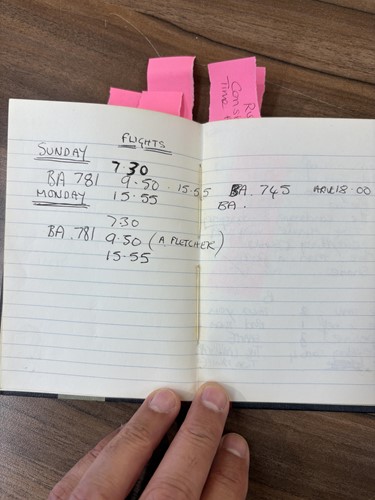 FLIGHTS
SUNDAY
7.30
BA 781 9.50 . 15.55
MONDAY 15.55
7.30
BA.781 9.50 (A.FLETCHER)
15-55
BA. 745 18.00
BA.
Time